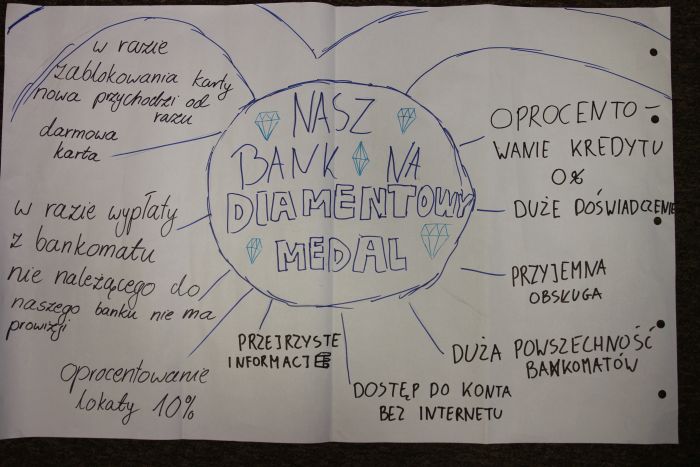 NASZ
BANK NA
DIAMENTOWY
MEDAL
w razie
zablokowania karty
nowa przychodzi od
razu
darmowa
karta
w razie wypłaty
z bankomatu
nie należącego do
naszego banku nie ma
prowizji
oprocentowanie
lokaty 10%
PRZEJRZYSTE
INFORMACJE
DOSTĘP DO KONTA
BEZ INTERNETU
DUŻA POWSZECHNOŚĆ
BANKOMATÓW
PRZYJEMNA
OBSŁUGA
DUŻE DOŚWIADCZENIE
OPROCENTO-
WANIE KREDYTU
0%